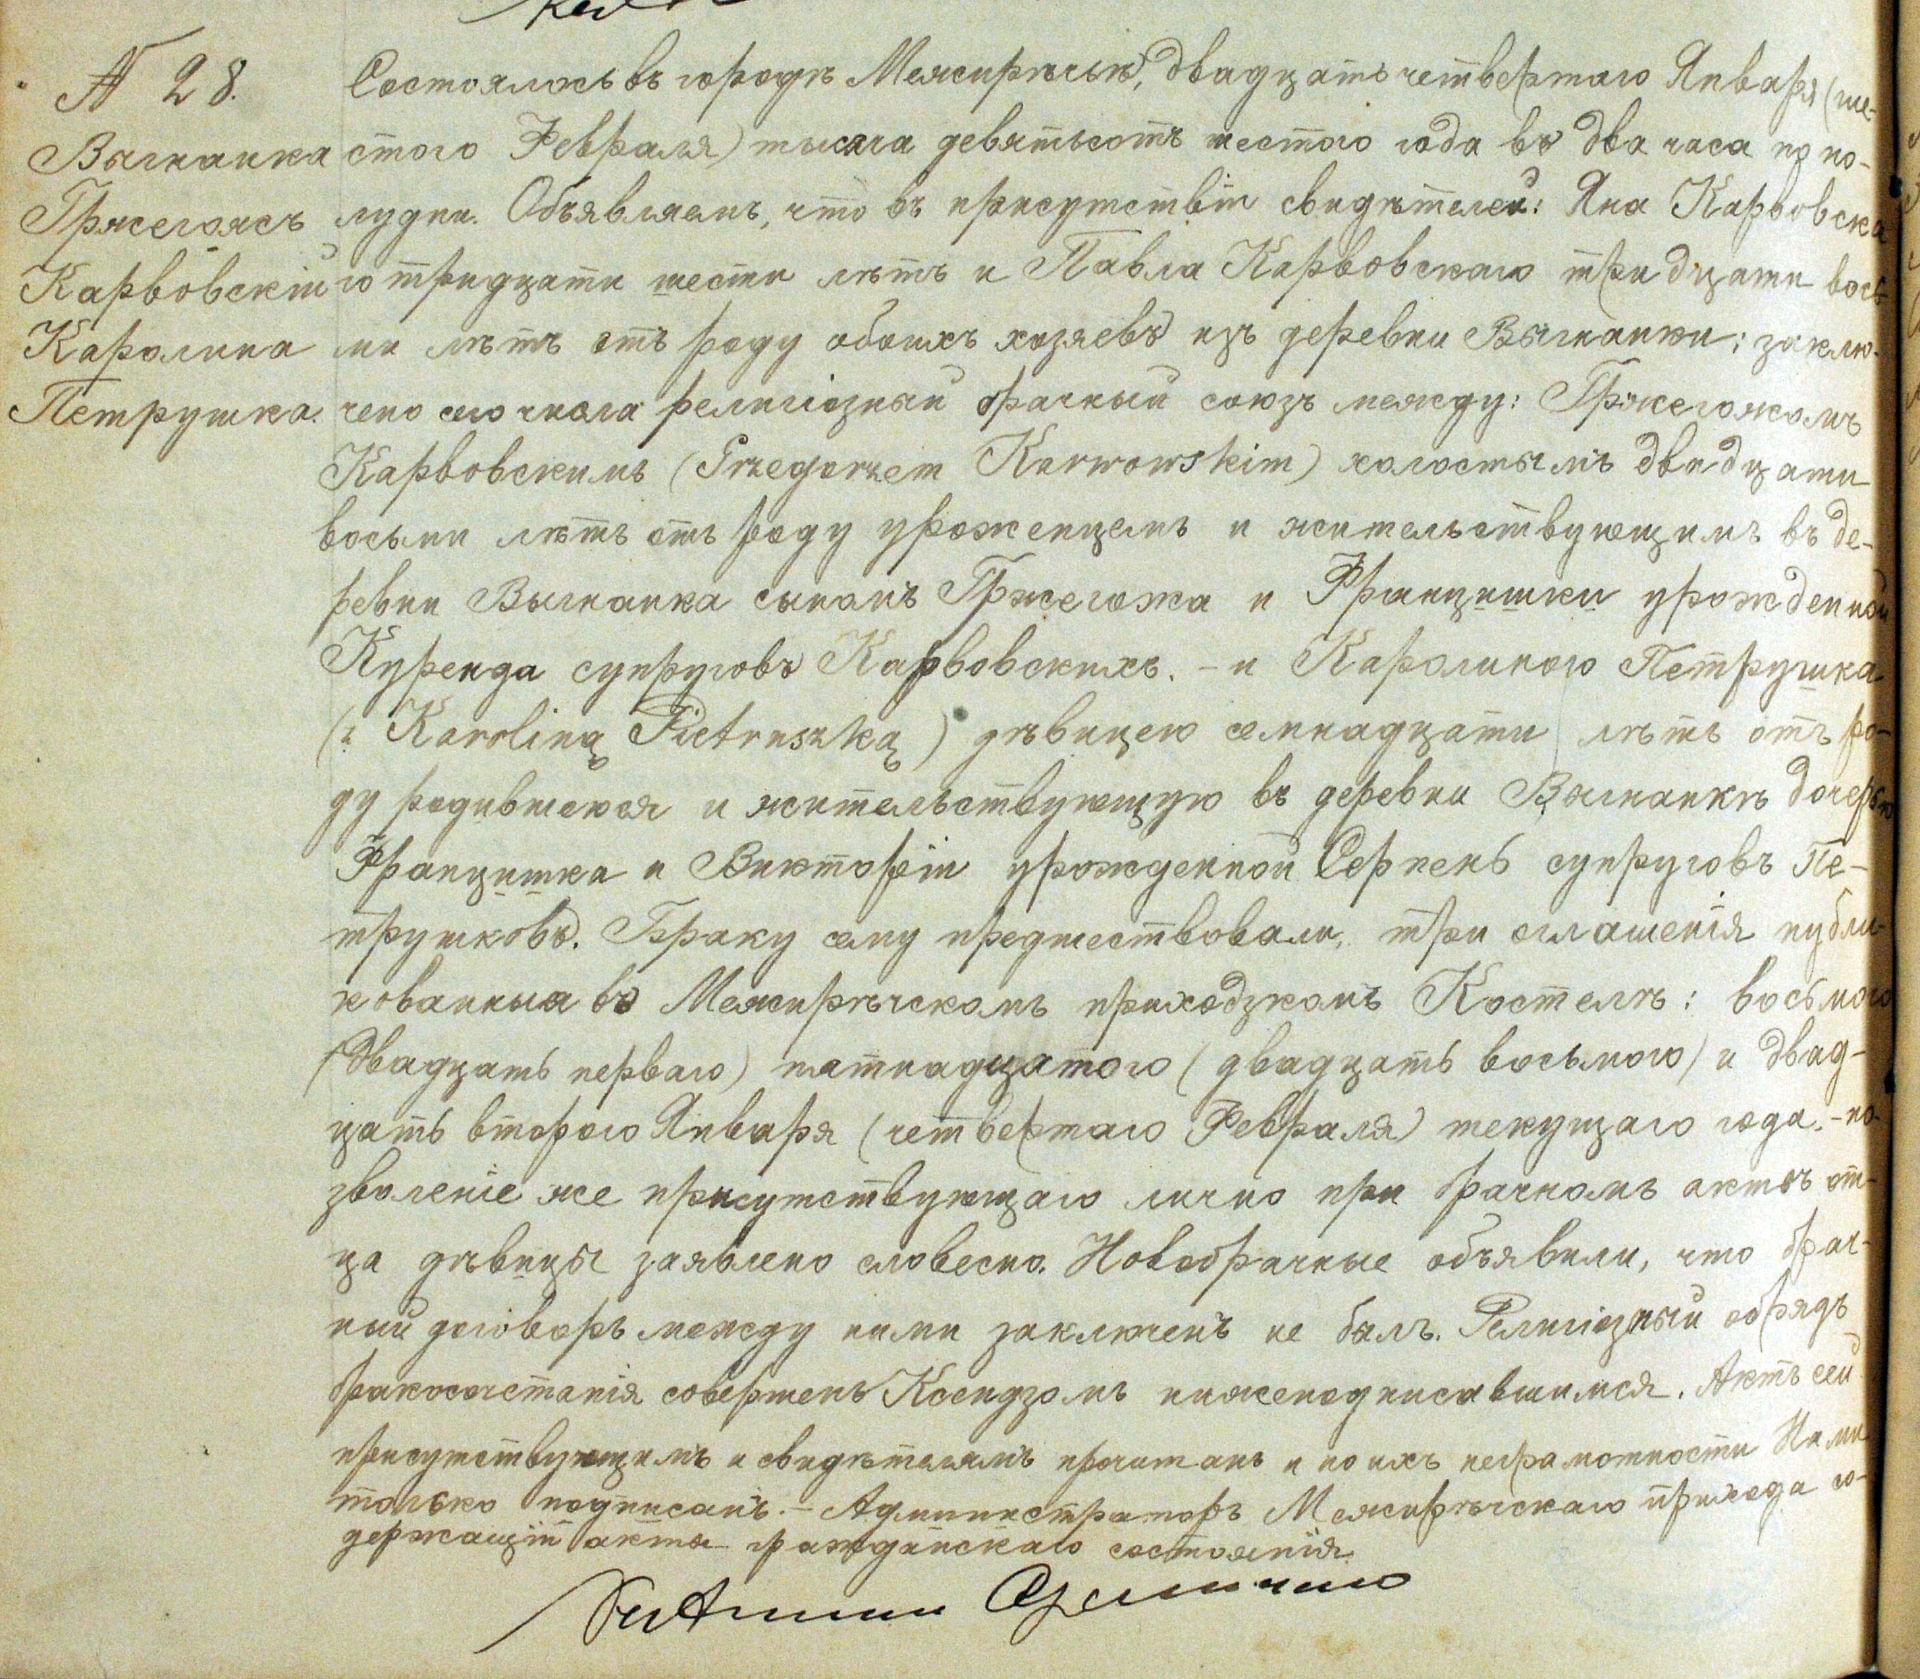 № 28.
Выгнанка
Гржегоясъ
Карвовскій
Каролина
Петрушка.
Состоялось въ городѣ Межирѣчьи, двадцать четвертаго Января (ше-
стого Февраля) тысяча девятьсотъ шестого года въ два часа по по-
лудни. Объявляемъ, что въ присутствіи свидѣтелей: Яна Карвовска
го тридцати шести лѣтъ и Павла Карвовскаго тридцати вось-
ми лѣтъ отъ роду обоихъ хозяевъ изъ деревни Выгнанки; заклю-
чено сего числа религіозный брачный союзъ между: Гржегожомъ
Карвовскимъ (Grzegorzem Karwowskim) холостымъ двадцати
восьми лѣтъ отъ роду уроженцемъ и жительствующимъ въ де-
ревни Выгнанка сыномъ Гржегожа и Францишки урожденной
Куренда супруговъ Карвовскихъ. - и Каролиною Петрушка
(z Karoliną Pietruszką) дѣвицею семнадцати лѣтъ отъ ро-
ду родившеюся и жительствующую въ деревни Выгнанкѣ дочерью
Францишка и Викторіи урожденной Серпень супруговъ Пе-
трушковъ. Браку сему предшествовали, три оглашенія публи-
кованныа въ Межирѣчскомъ приходзкомъ Костелѣ: восьмого
(двадцать перваго) пятнадцатого (двадцать восьмого) и двад-
цать второго Января (четвертаго Февраля) текущаго года. - по
зволеніе же присутствующаго лично при брачномъ актѣ от-
ца дѣвицы заявлено словесно. Новобрачные объявили, что брач-
ный договоръ между ними заключенъ не былъ. Религіозный обрядъ
бракосочетанія совершенъ Ксендзомъ нижеподписавшимся. Актъ сей
присутствующимъ и свидѣтелямъ прочитанъ и по ихъ неграмотности Нами
только подписанъ. - Администраторъ Межирѣчскаго прихода со-
держащій акты гражданскаго состоянія